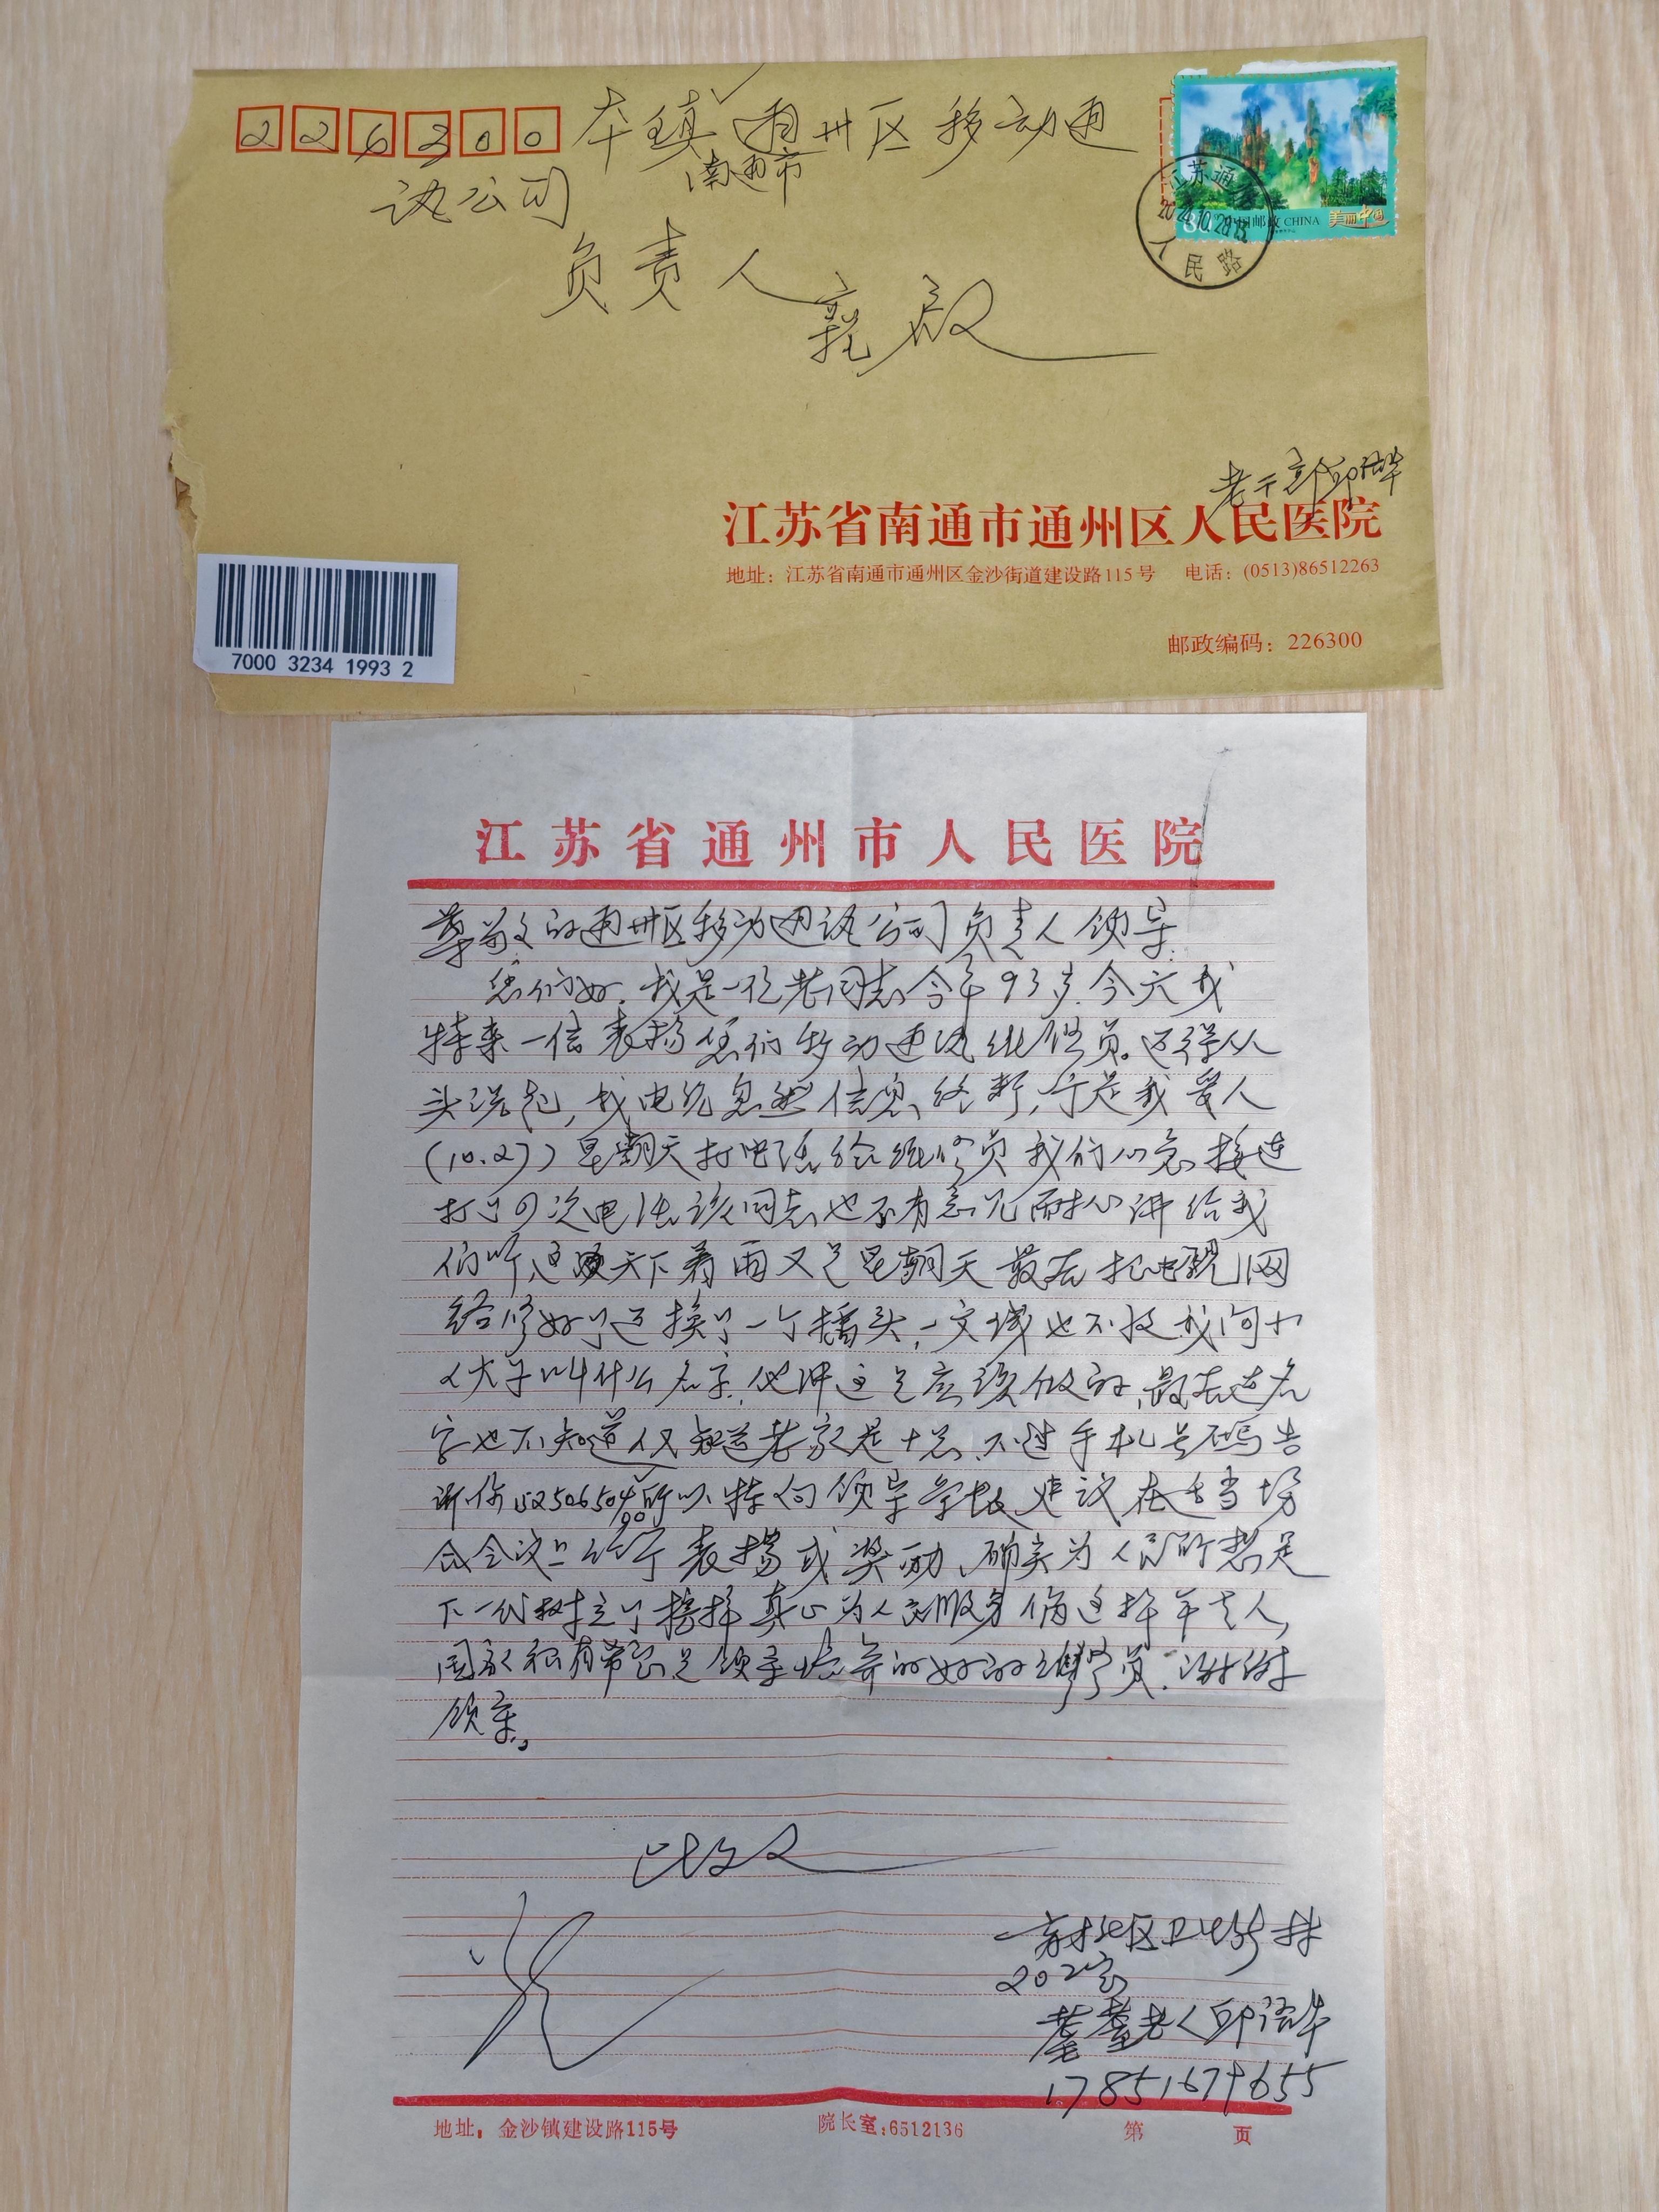 226300
本镇 通州区移动通
南通市
讯公司
负责人
亲启
江苏通州
2024.10.28
人民路
80 中国邮政 CHINA 美丽中国
老干部邱
江苏省南通市通州区人民医院
地址：江苏省南通市通州区金沙街道建设路115号 电话：(0513)86512263
邮政编码：226300
7000 3234 1993 2
江苏省通州市人民医院
尊敬的通州区移动通讯公司负责人领导
您们好.我是一位老同志今年93岁.今天我
特来一信表扬您们移动通讯维修员。这得从
头说起,我电视忽然信息终断,于是我爱人
(10.27)星期天打电话给维修员我们心急接连
打了几次电话该同志也不有意见耐心讲给我
们听,这天下着雨又是星期天最后把电视网
络修好了还换了一个插头,一文钱也不收我问小
伙子叫什么名字.他讲这是应该做的,最后连名
字也不知道仅知道老家是十总.不过手机号码告
诉你 所以特向领导汇报建议在适当场
合会议上给予表揚或奖励、确实为人民所想是
下一代树立了榜样真心为人民服务俩这样年老人,
国家很有希望是领导培养的好的维修员.谢谢
领导.。
此致
礼
新村北区卫生 幢
202室
耄耋老人邱
17851679655
地址：金沙镇建设路115号 院长室:6512136 第 页